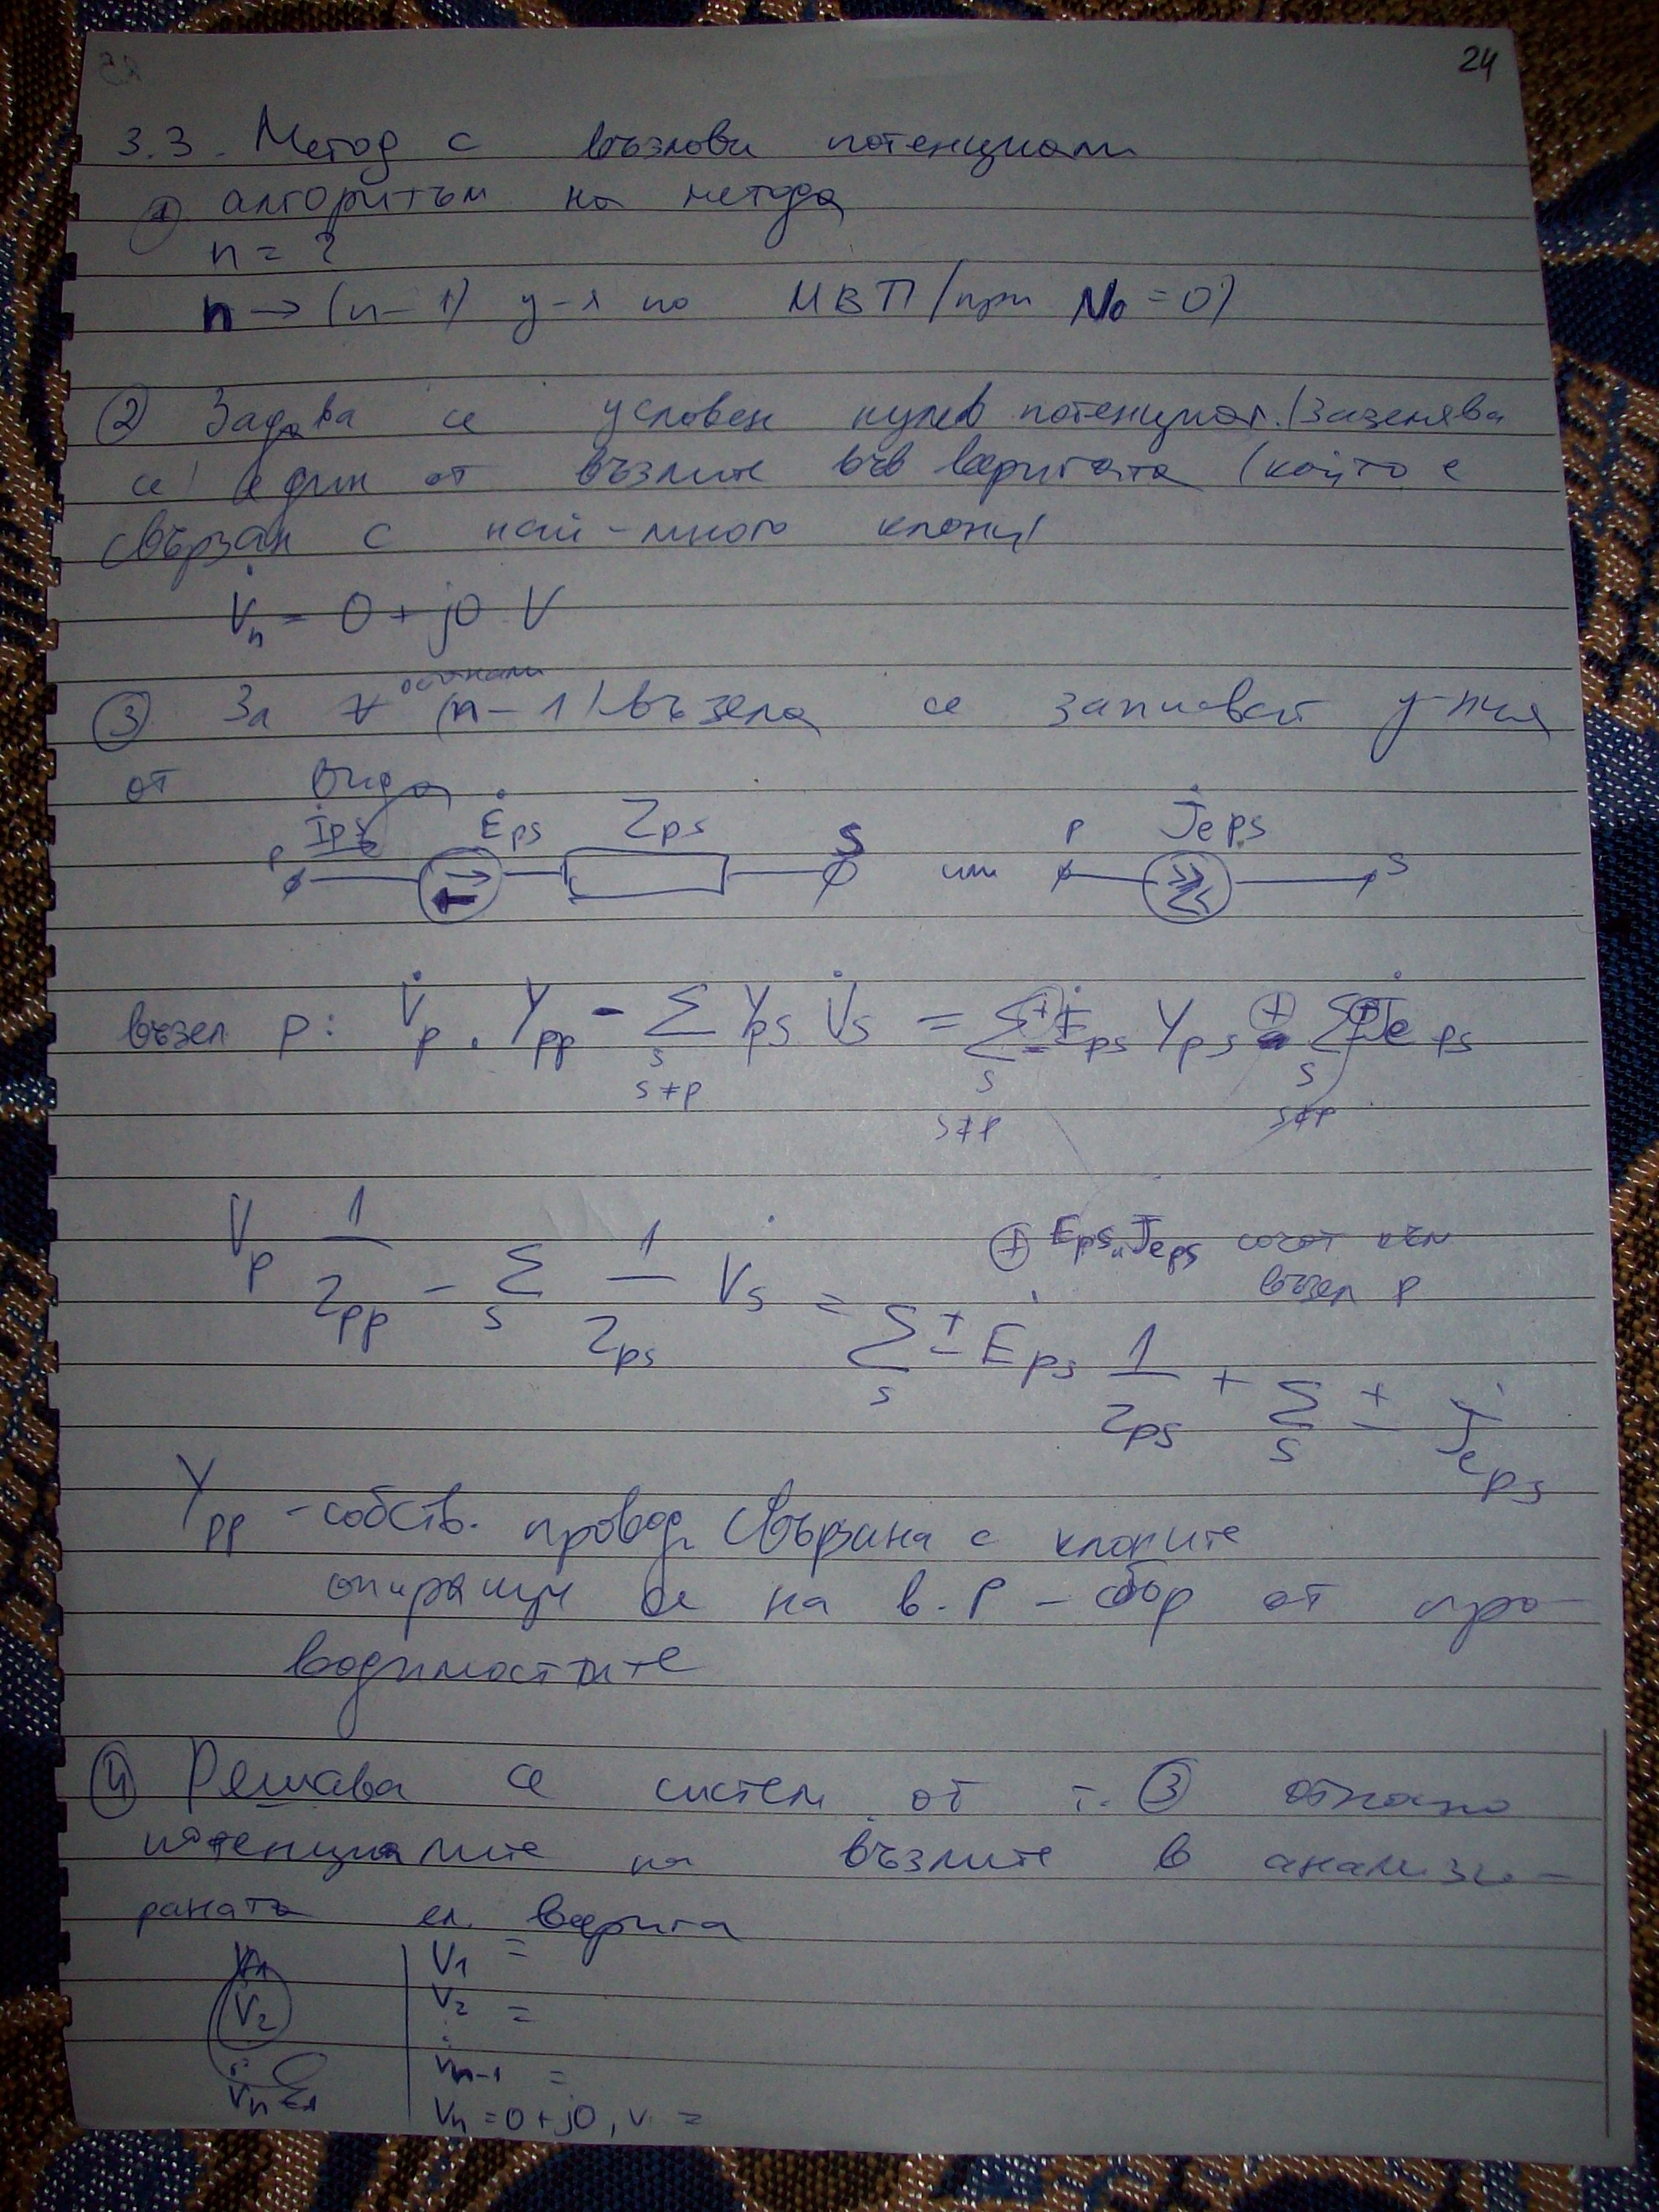 24
3.3. Метод с възлови потенциали
① алгоритъм на метода
n = ?
n → (n-1) у-я по МВП /при N₀ = 0/
② Задава се условен нулев потенциал. /Заземява
се/ един от възлите във веригата (който е
свързан с най-много клони/
V̇n = 0 + j0 V
останали
③ За ∀ (n-1) възела се записват у-ния
от вида
p İps Ėps Zps S или p J̇eps S
възел p: V̇p . Ypp - Σ Yps V̇s = Σ ± Ėps Yps + Σ ± J̇e ps
s s≠p s s≠p s s≠p
V̇p 1/Zpp - Σs 1/Zps Vs = Σs ± Ėps 1/Zps + Σs ± J̇eps
⊕ Eps и Jeps сочат към
възел p
Ypp - собств. провод. свързана с клоните
опиращи се на в. P - сбор от про-
водимостите
④ Решава се систем от т. ③ относно
потенциалите на възлите в анализи-
раната ел. верига
V1 =
V2 V2 =
V̇n-1 =
Vn = 0 + j0, V =